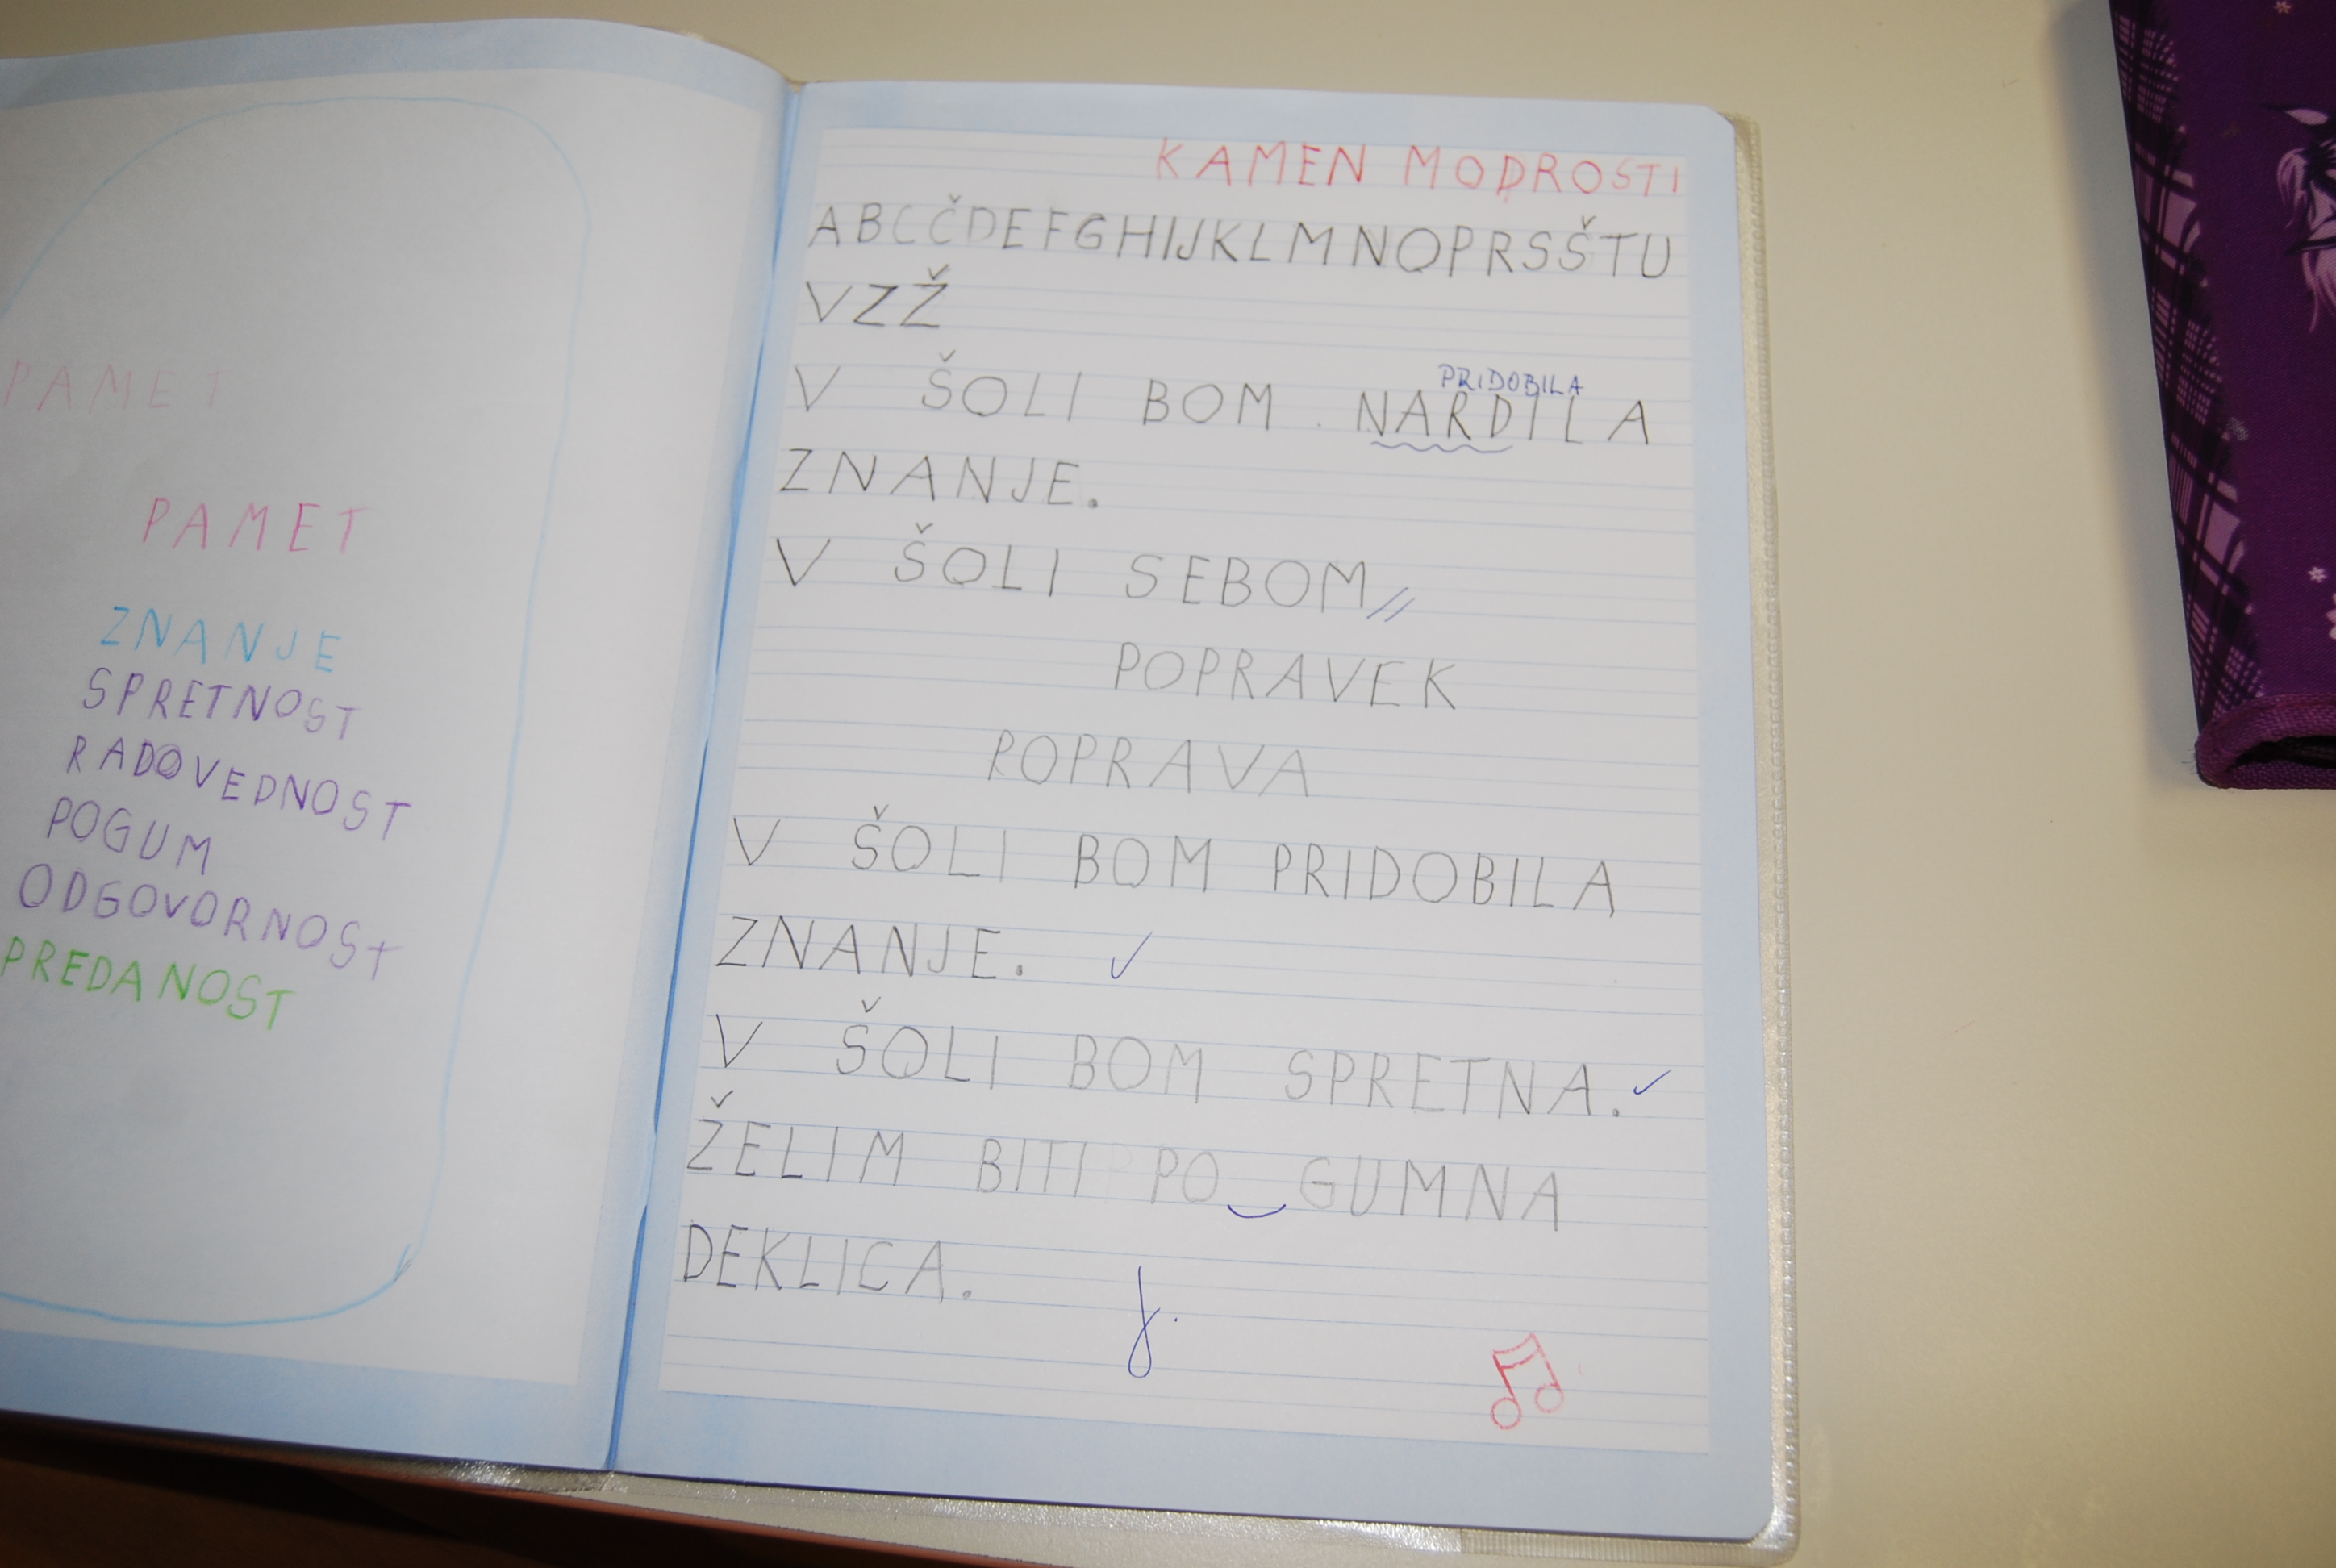 PAMET
PAMET
ZNANJE
SPRETNOST
RADOVEDNOST
POGUM
ODGOVORNOST
PREDANOST
KAMEN MODROSTI
ABCČDEFGHIJKLMNOPRSŠTU
VZŽ
PRIDOBILA
V ŠOLI BOM NARDILA
ZNANJE.
V ŠOLI SEBOM//
POPRAVEK
POPRAVA
V ŠOLI BOM PRIDOBILA
ZNANJE. ✓
V ŠOLI BOM SPRETNA. ✓
ŽELIM BITI PO GUMNA
DEKLICA.